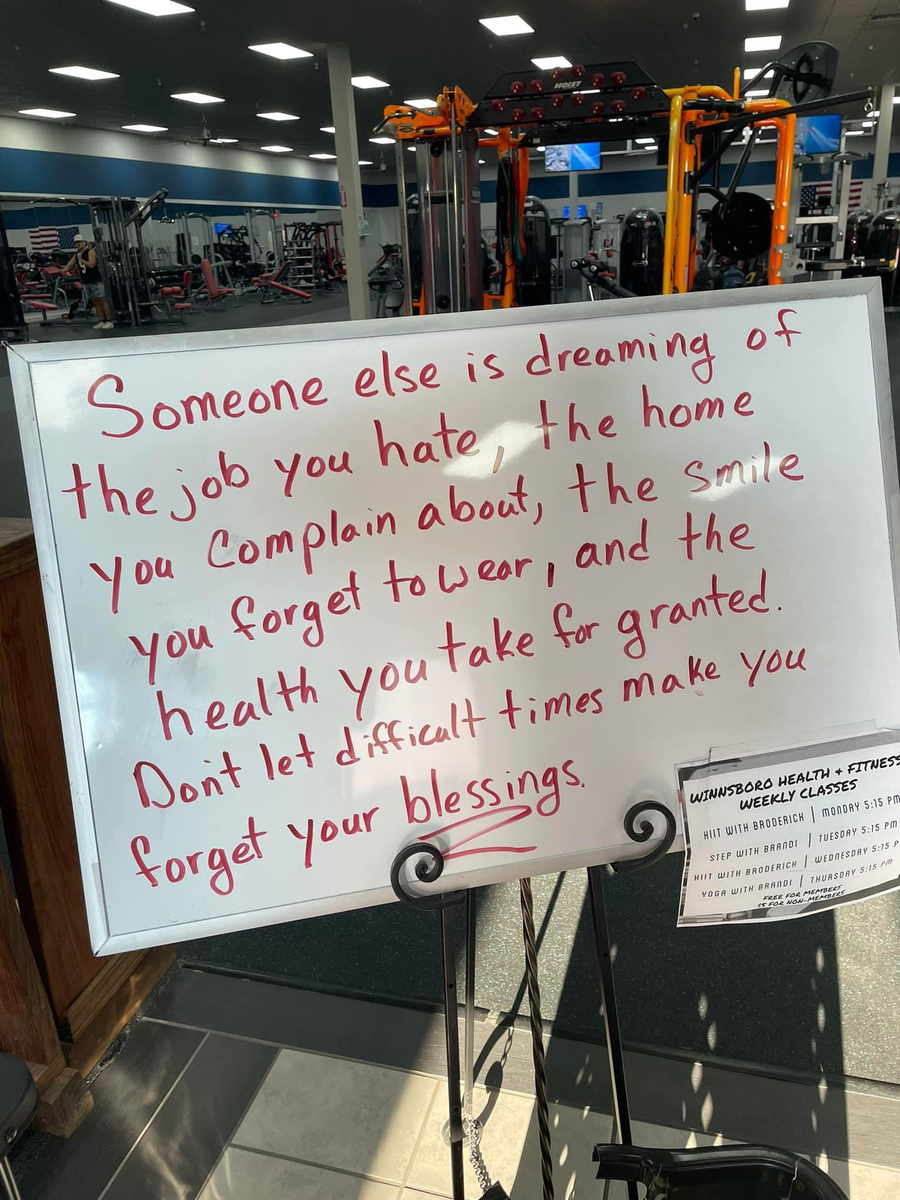 Someone else is dreaming of
the job you hate, the home
you Complain about, the Smile
you forget to wear, and the
health you take for granted.
Don't let difficult times make you
forget your blessings.
WINNSBORO HEALTH + FITNESS
WEEKLY CLASSES
HIIT WITH BRODERICK | MONDAY 5:15 PM
STEP WITH BRANDI | TUESDAY 5:15 PM
HIIT WITH BRODERICK | WEDNESDAY 5:15 P
YOGA WITH BRANDI | THURSDAY 5:15 PM
FREE FOR MEMBERS
FOR NON-MEMBERS